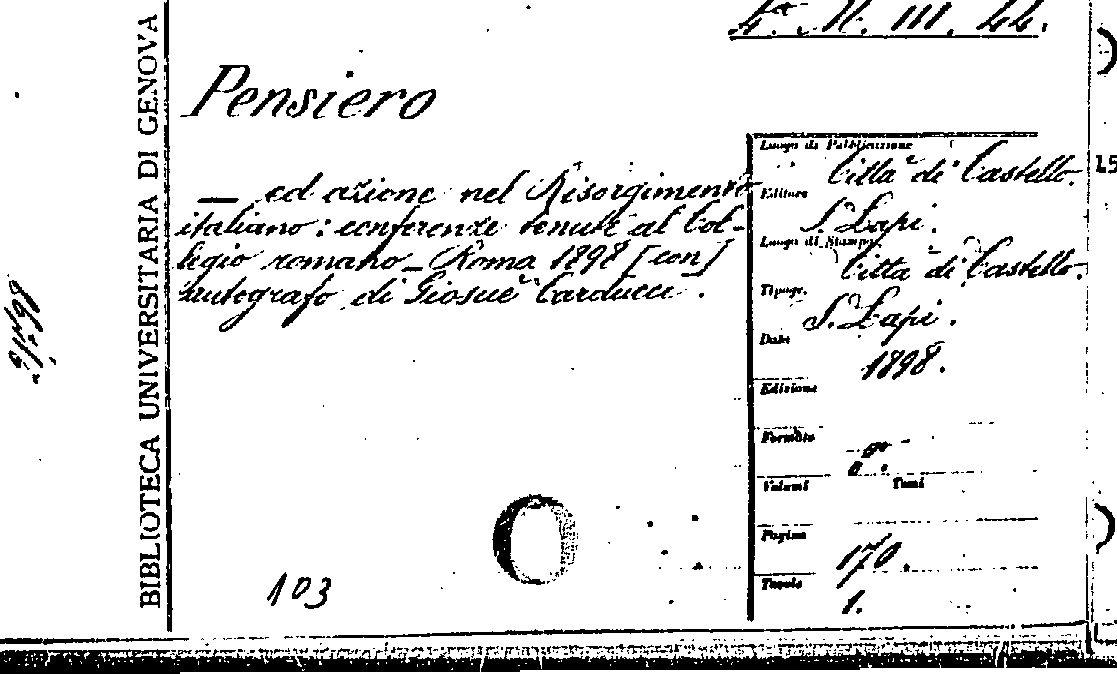 4.ª M. III. 44.
BIBLIOTECA UNIVERSITARIA DI GENOVA
Pensiero
— ed azione nel Risorgimento
italiano: conferenze tenute al Col-
legio romano – Roma 1898 [con]
autografo di Giosuè Carducci.
Luogo di Pubblicazione
Città di Castello.
Editore
S. Lapi.
Luogo di Stampa
Città di Castello.
Tipogr.
S. Lapi.
Data
1898.
Edizione
Formato
8º.
Volumi Tomi
Pagine
170.
Tavole
1.
103
15